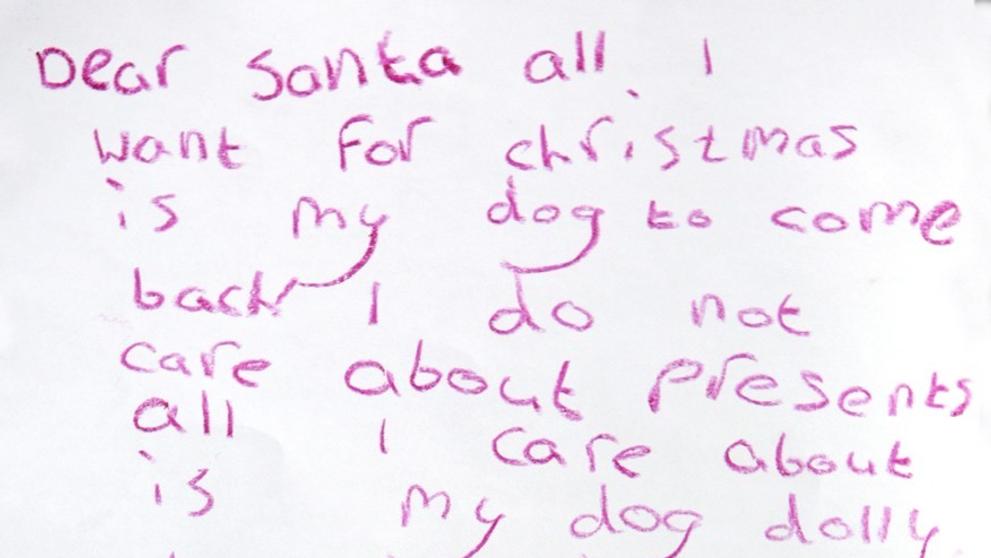 Dear Santa all I
want for christmas
is my dog to come
back I do not
care about presents
all I care about
is my dog dolly